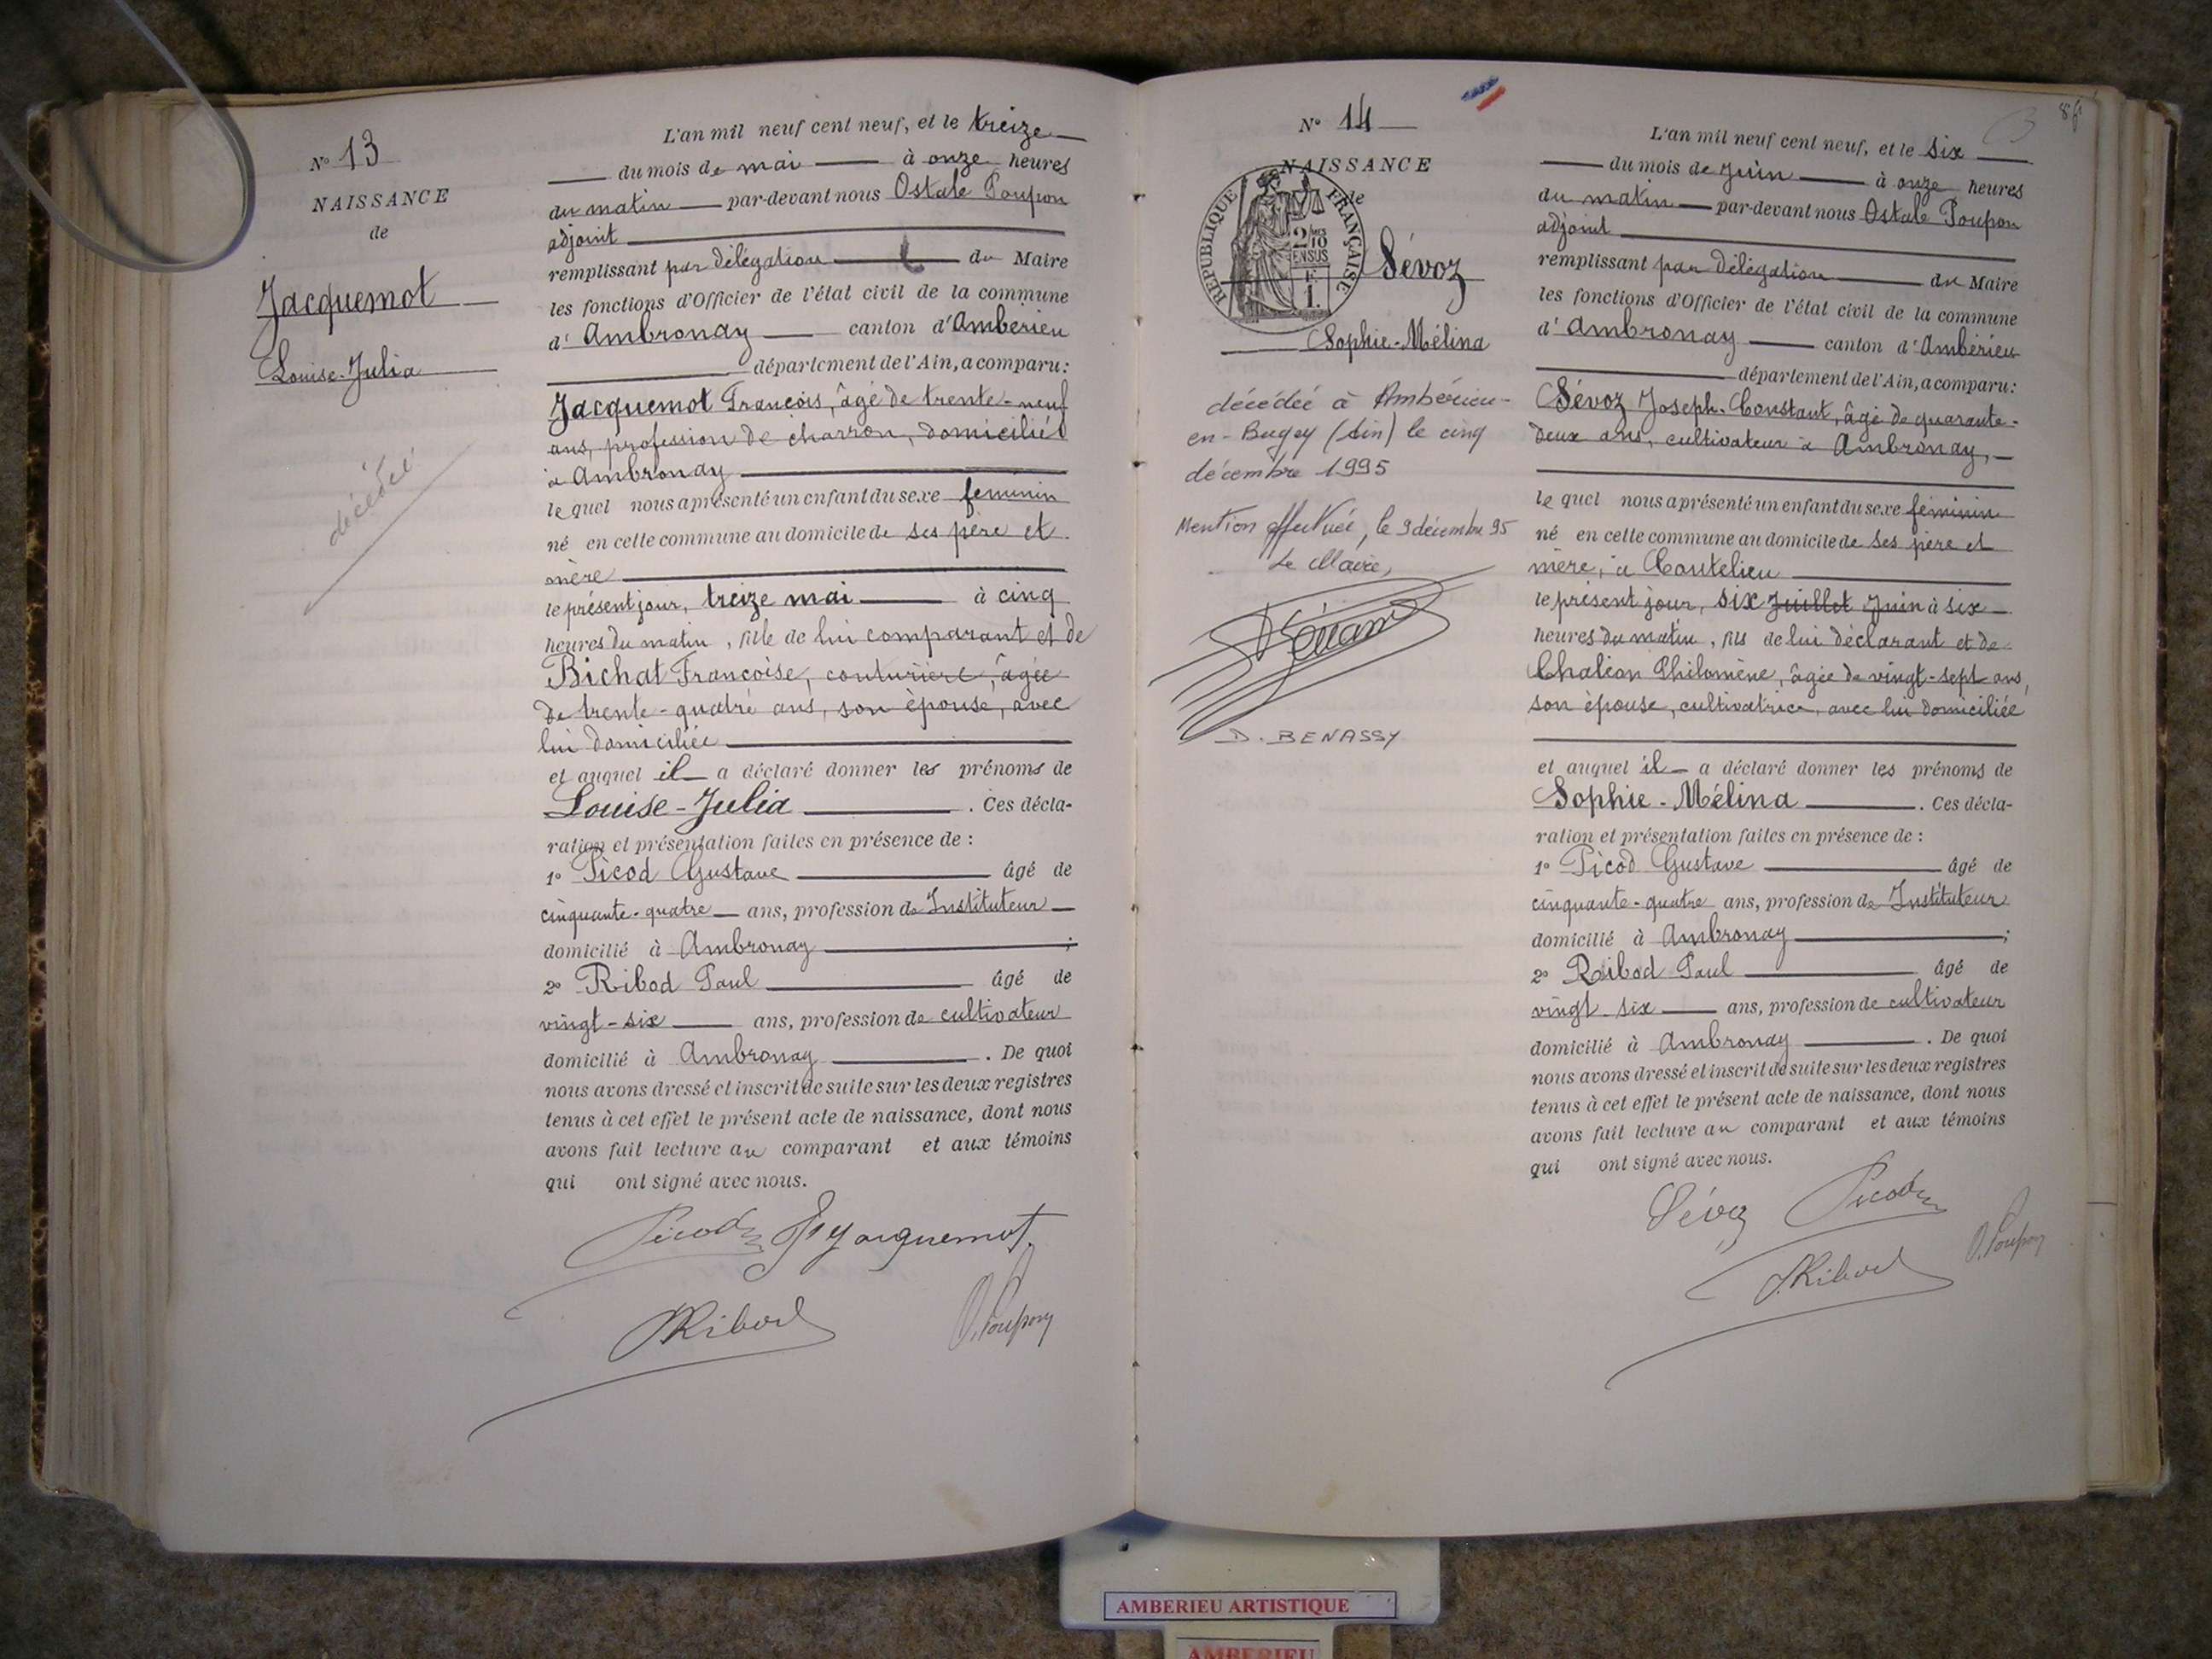 N° 13
NAISSANCE
de
Jacquemot
Louise-Julia
décédée
L'an mil neuf cent neuf, et le treize
du mois de mai à onze heures
du matin par-devant nous Ostale Poupon
adjoint
remplissant par délégation du Maire
les fonctions d'Officier de l'état civil de la commune
d' Ambronay canton d'Ambérieu
département de l'Ain, a comparu:
Jacquemot François, âgé de trente-neuf
ans, profession de charron, domicilié
à Ambronay
lequel nous a présenté un enfant du sexe féminin
né en cette commune au domicile de ses père et
mère
le présent jour, treize mai à cinq
heures du matin, fille de lui comparant et de
Bichat Françoise, couturière, âgée
de trente-quatre ans, son épouse, avec
lui domiciliée
et auquel il a déclaré donner les prénoms de
Louise-Julia. Ces décla-
ration et présentation faites en présence de :
1° Picod Gustave âgé de
cinquante-quatre ans, profession de Instituteur
domicilié à Ambronay ;
2° Ribod Paul âgé de
vingt-six ans, profession de cultivateur
domicilié à Ambronay. De quoi
nous avons dressé et inscrit de suite sur les deux registres
tenus à cet effet le présent acte de naissance, dont nous
avons fait lecture au comparant et aux témoins
qui ont signé avec nous.
Picod Jacquemot
Ribod O. Poupon
N° 14
NAISSANCE
de
RÉPUBLIQUE FRANÇAISE
2/10
EN SUS
F
1.
Sévoz
Sophie-Mélina
décédée à Ambérieu-
en-Bugey (Ain) le cinq
décembre 1995
Mention effectuée, le 9 décembre 95
Le Maire,
D. BENASSY
L'an mil neuf cent neuf, et le six
du mois de Juin à onze heures
du matin par-devant nous Ostale Poupon
adjoint
remplissant par délégation du Maire
les fonctions d'Officier de l'état civil de la commune
d' Ambronay canton d'Ambérieu
département de l'Ain, a comparu:
Sévoz Joseph-Constant, âgé de quarante-
deux ans, cultivateur à Ambronay,
lequel nous a présenté un enfant du sexe féminin
né en cette commune au domicile de ses père et
mère, à Coutelieu
le présent jour, six Juillet Juin à six
heures du matin, fils de lui déclarant et de
Chaléon Philomène, âgée de vingt-sept ans,
son épouse, cultivatrice, avec lui domiciliée
et auquel il a déclaré donner les prénoms de
Sophie-Mélina. Ces décla-
ration et présentation faites en présence de :
1° Picod Gustave âgé de
cinquante-quatre ans, profession de Instituteur
domicilié à Ambronay ;
2° Ribod Paul âgé de
vingt-six ans, profession de cultivateur
domicilié à Ambronay. De quoi
nous avons dressé et inscrit de suite sur les deux registres
tenus à cet effet le présent acte de naissance, dont nous
avons fait lecture au comparant et aux témoins
qui ont signé avec nous.
Sévoz Picod
Ribod O. Poupon
AMBERIEU ARTISTIQUE
AMBERIEU